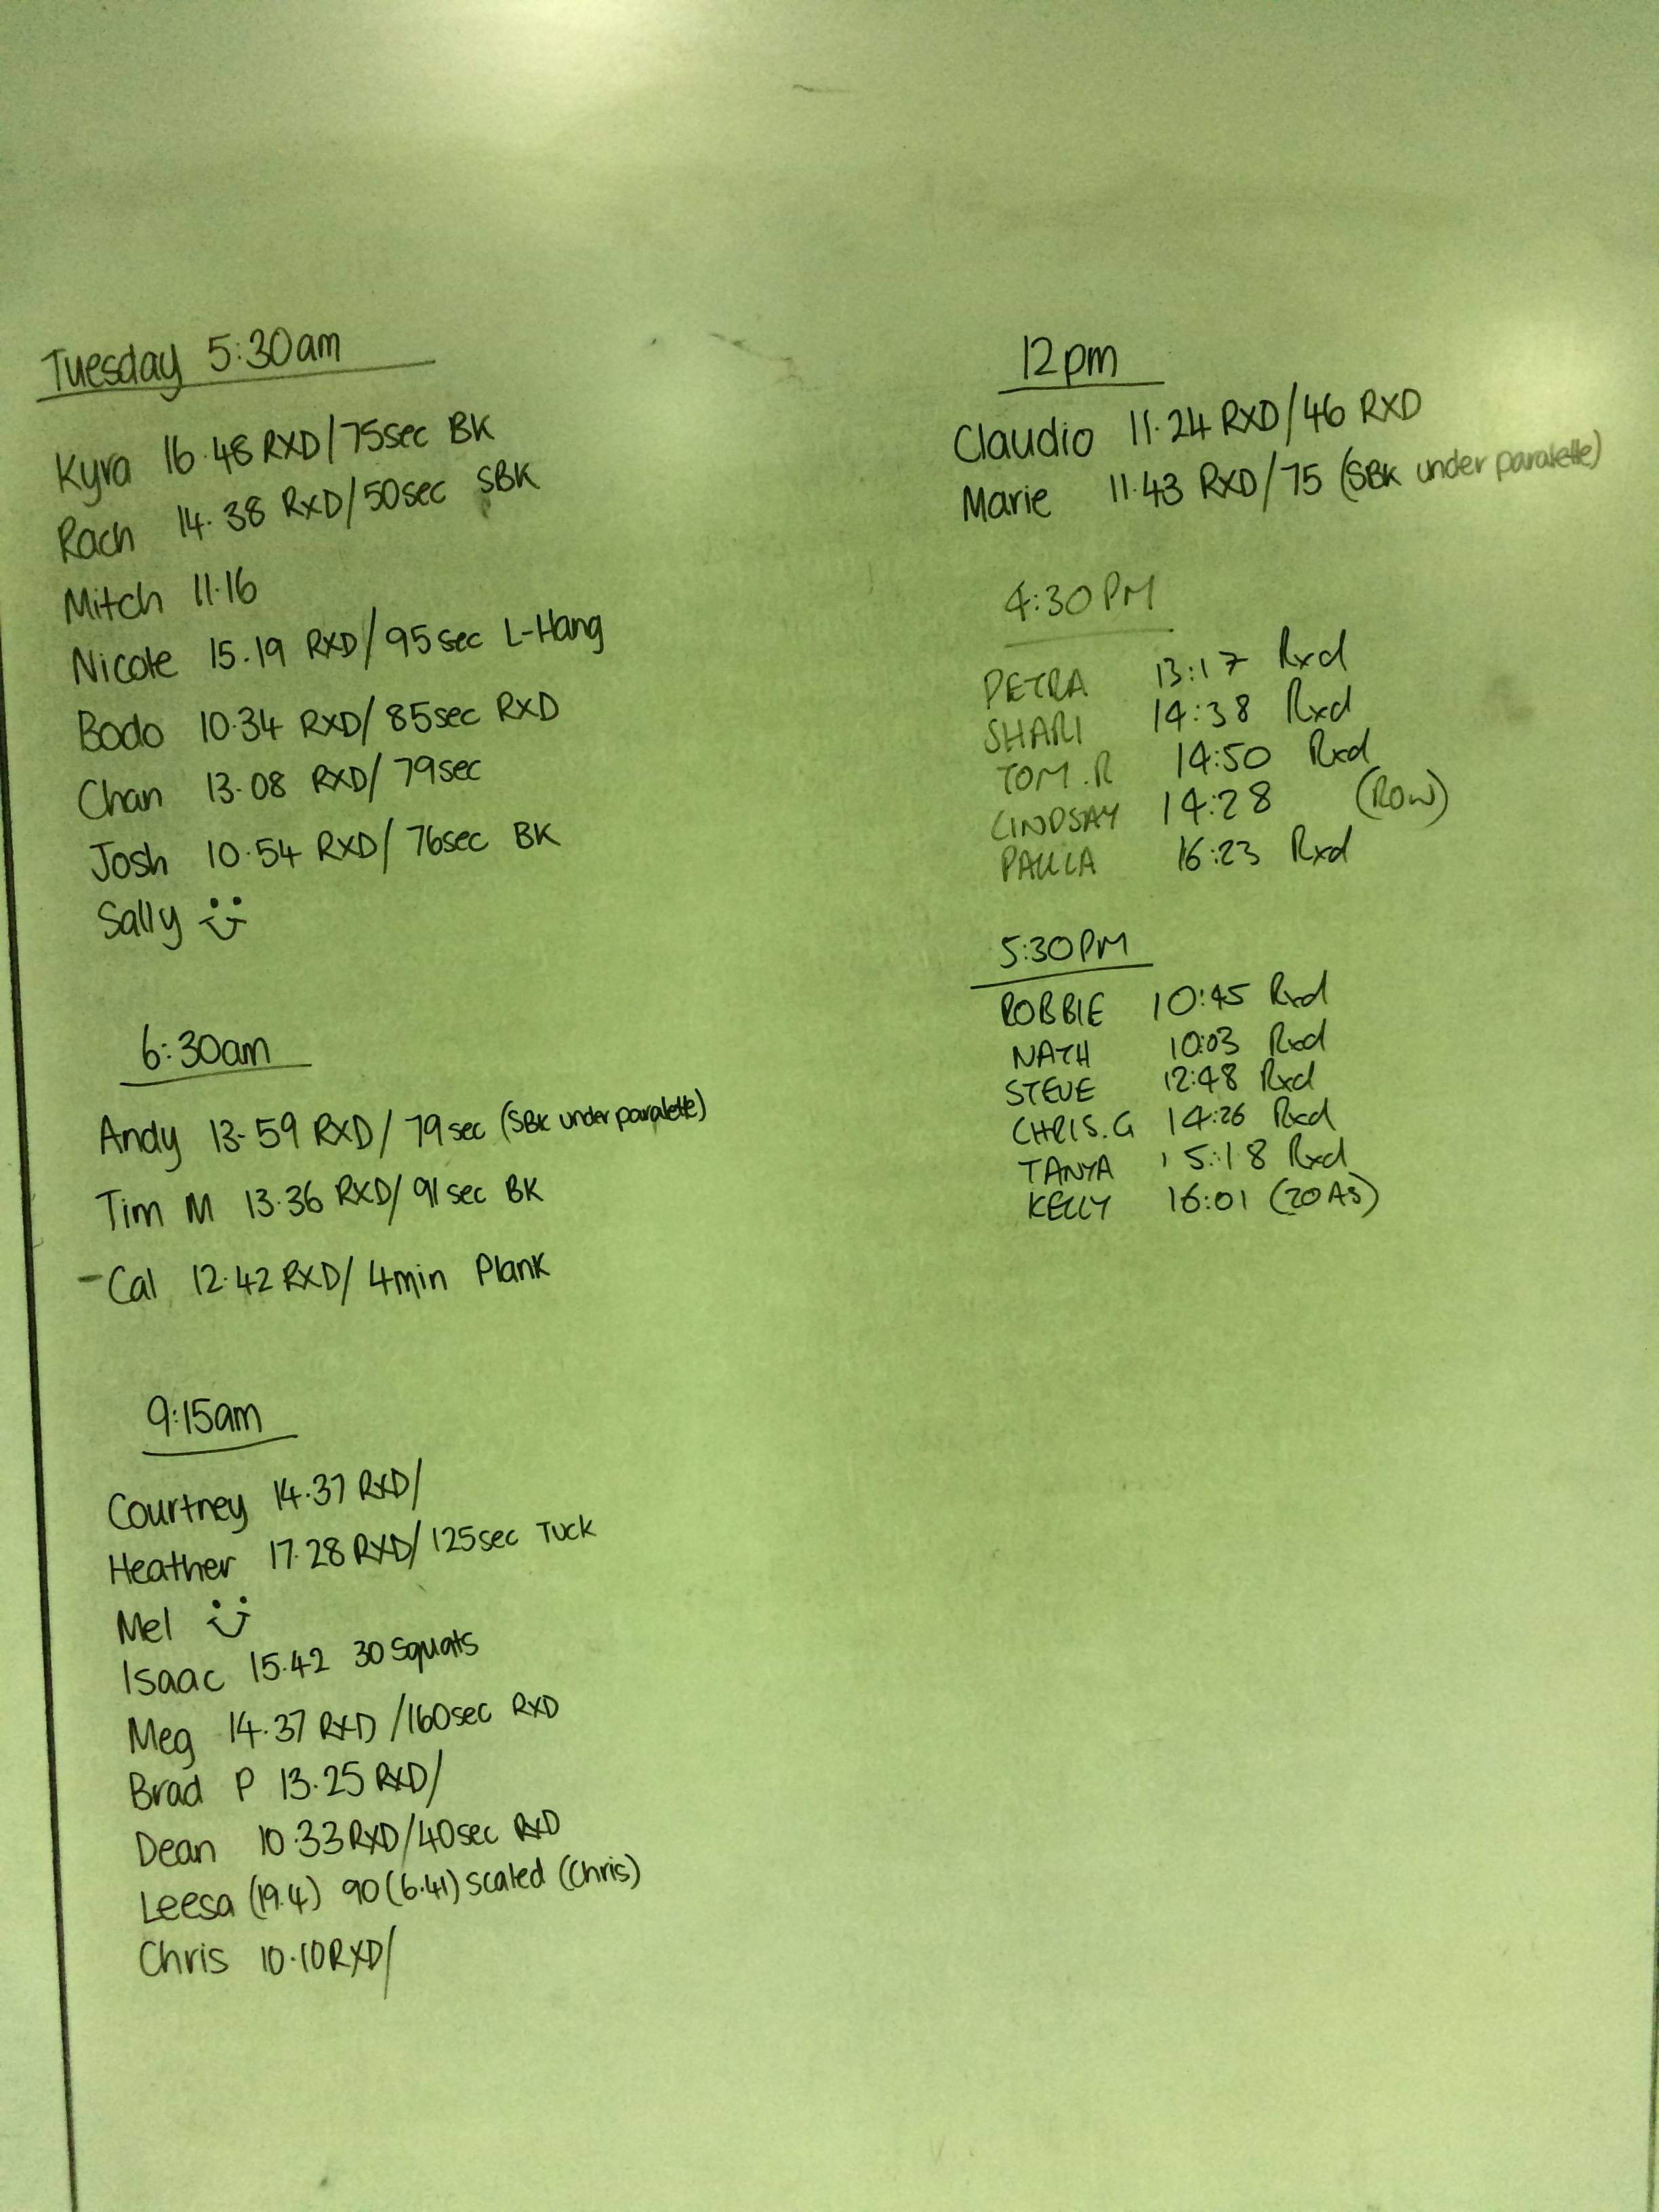 Tuesday 5:30am
Kyra 16.48 RXD/75sec BK
Rach 14.38 RXD/50sec SBK
Mitch 11.16
Nicole 15.19 RXD/95sec L-Hang
Bodo 10.34 RXD/85sec RXD
Chan 13.08 RXD/79sec
Josh 10.54 RXD/76sec BK
Sally
6:30am
Andy 13.59 RXD/79sec (SBK under paralette)
Tim M 13.36 RXD/91sec BK
-Cal 12.42 RXD/4min Plank
9:15am
Courtney 14.37 RXD/
Heather 17.28 RXD/125sec Tuck
Mel
Isaac 15.42 30 Squats
Meg 14.37 RXD/160sec RXD
Brad P 13.25 RXD/
Dean 10.33 RXD/40sec RXD
Leesa (19.4) 90 (6.41) scaled (Chris)
Chris 10.10 RXD/
12pm
Claudio 11.24 RXD/46 RXD
Marie 11.43 RXD/75 (SBK under paralette)
4:30PM
PETRA 13:17 Rxd
SHARI 14:38 Rxd
TOM.R 14:50 Rxd
LINDSAY 14:28 (ROW)
PAULA 16:23 Rxd
5:30PM
ROBBIE 10:45 Rxd
NATH 10:03 Rxd
STEVE 12:48 Rxd
CHRIS.G 14:26 Rxd
TANYA 15:18 Rxd
KELLY 16:01 (20AS)